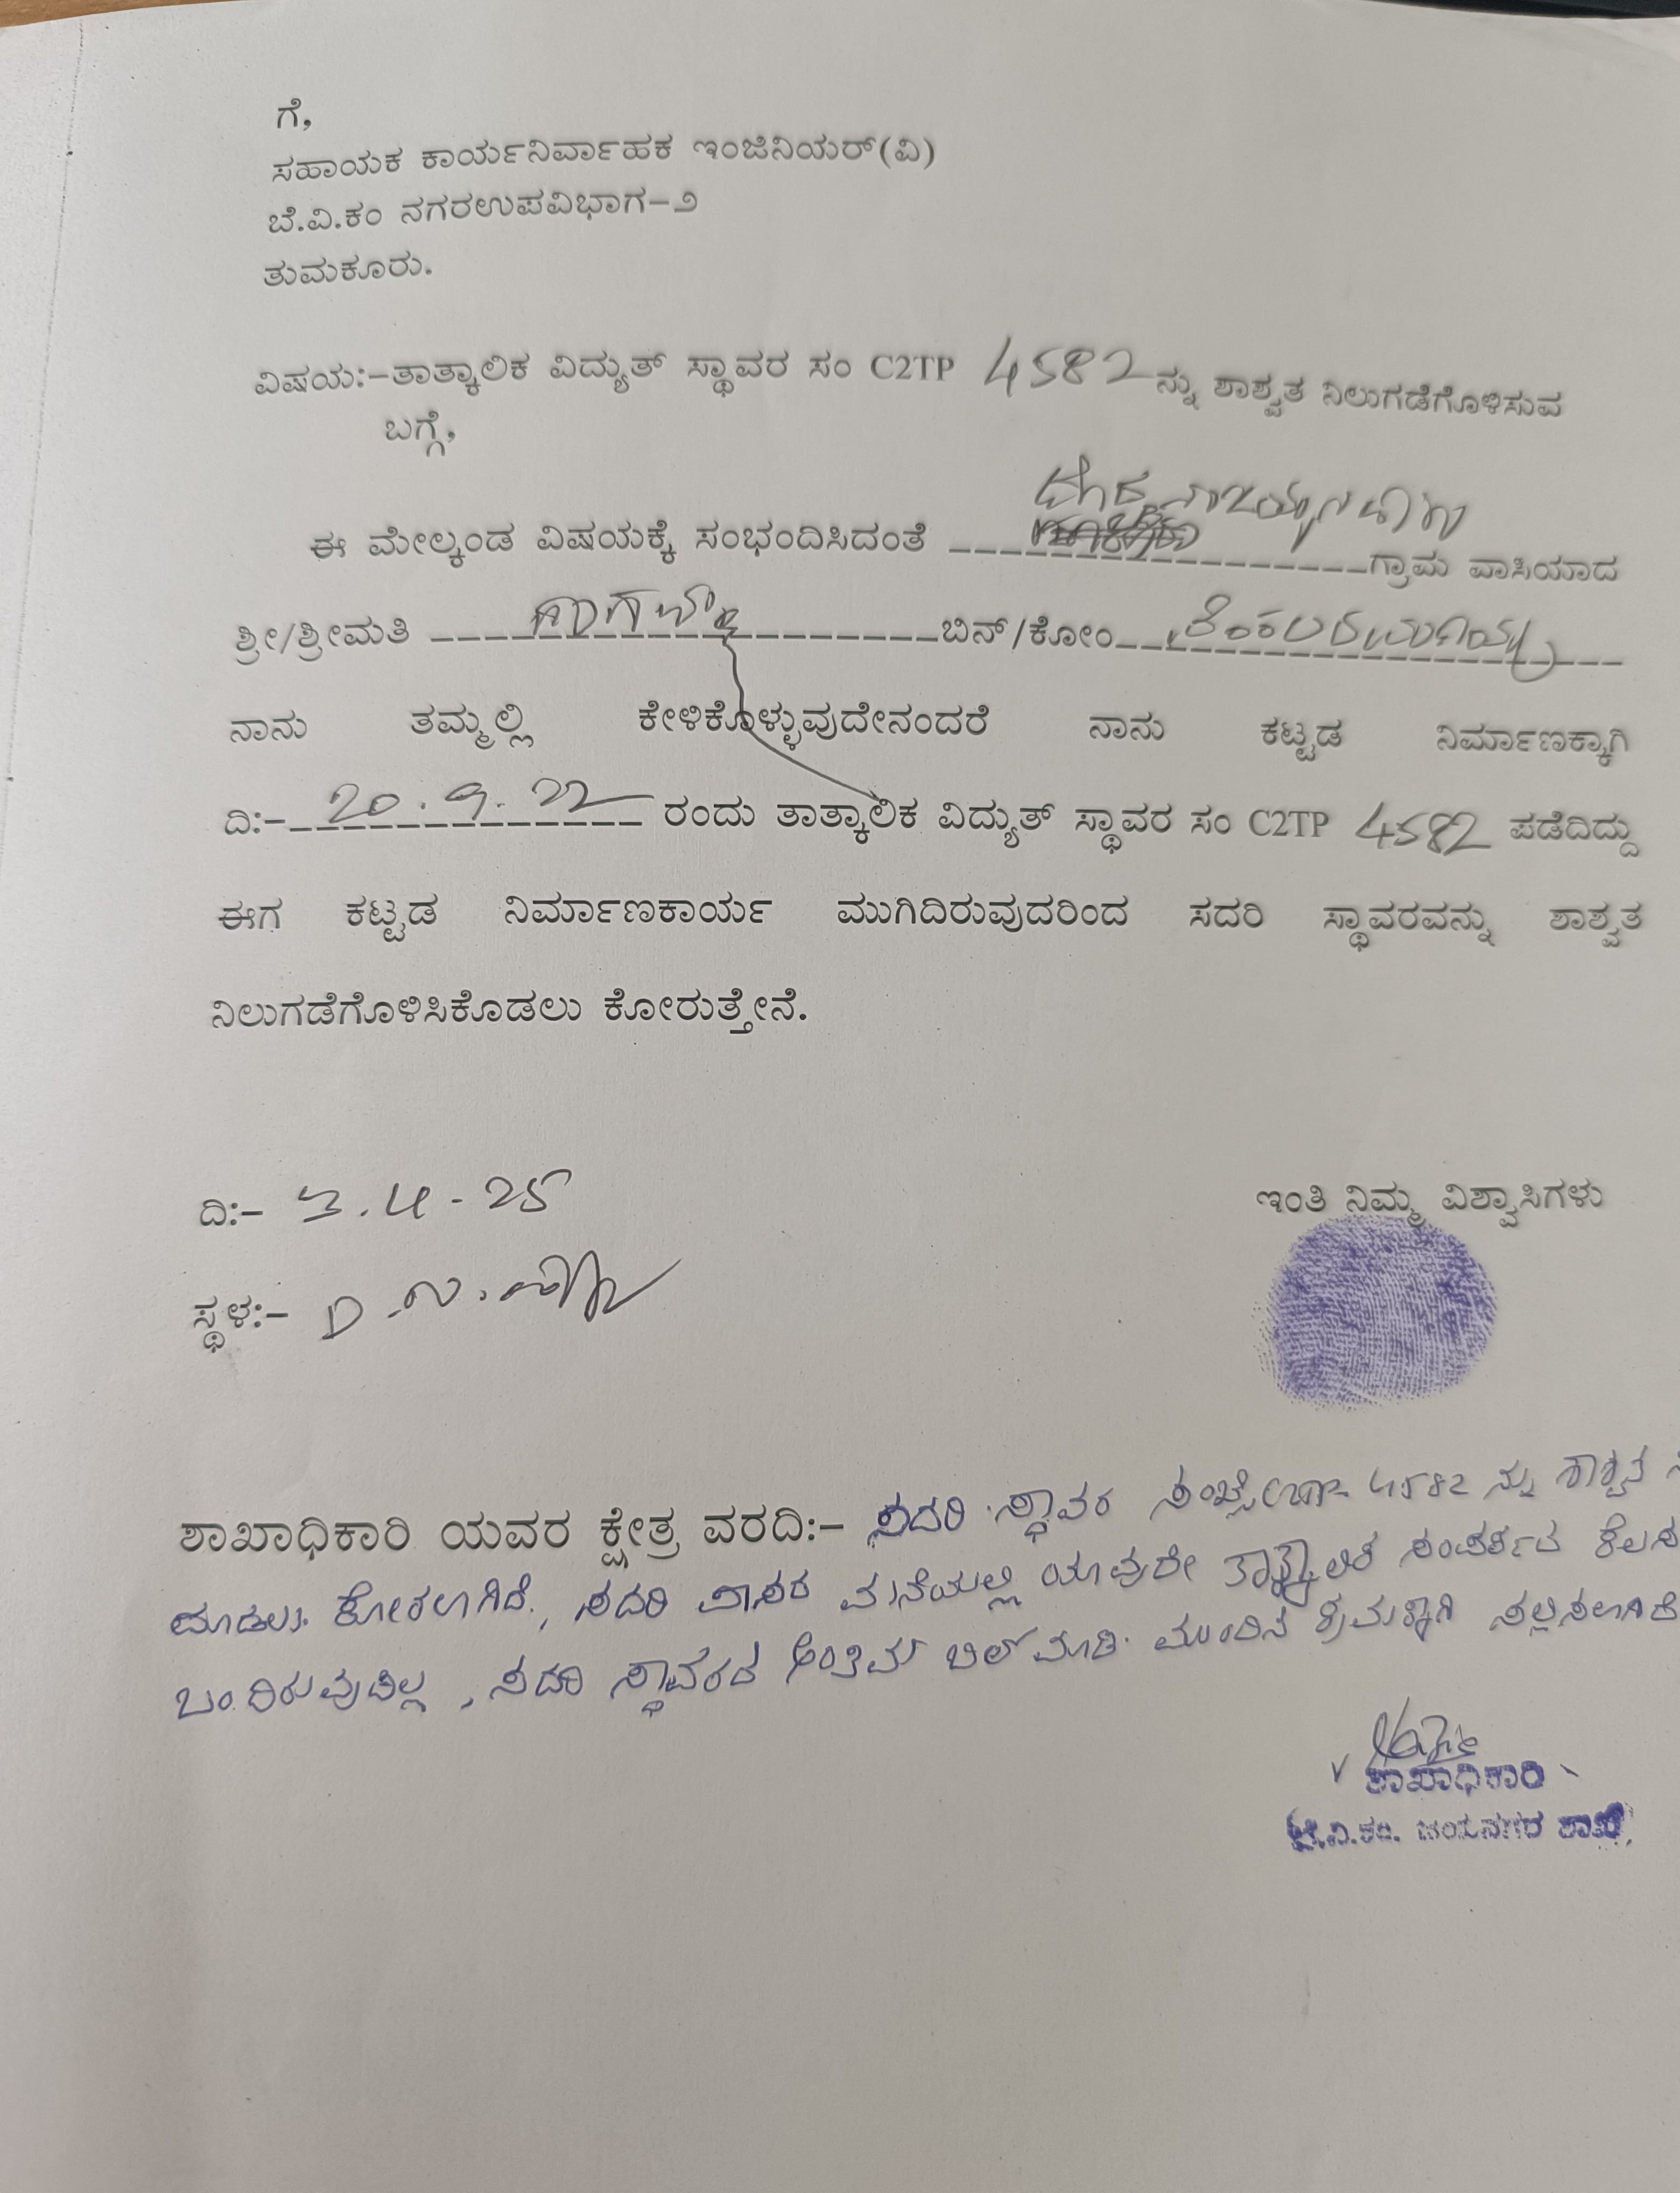 ಗೆ,
ಸಹಾಯಕ ಕಾರ್ಯನಿರ್ವಾಹಕ ಇಂಜಿನಿಯರ್(ವಿ)
ಬೆ.ವಿ.ಕಂ ನಗರಉಪವಿಭಾಗ–೨
ತುಮಕೂರು.
ವಿಷಯ:–ತಾತ್ಕಾಲಿಕ ವಿದ್ಯುತ್ ಸ್ಥಾವರ ಸಂ C2TP 4582 ನ್ನು ಶಾಶ್ವತ ನಿಲುಗಡೆಗೊಳಿಸುವ
ಬಗ್ಗೆ,
ಈ ಮೇಲ್ಕಂಡ ವಿಷಯಕ್ಕೆ ಸಂಭಂದಿಸಿದಂತೆ ಗ್ರಾಮ ವಾಸಿಯಾದ
ಶ್ರೀ/ಶ್ರೀಮತಿ ಬಿನ್/ಕೋಂ
ನಾನು ತಮ್ಮಲ್ಲಿ ಕೇಳಿಕೊಳ್ಳುವುದೇನಂದರೆ ನಾನು ಕಟ್ಟಡ ನಿರ್ಮಾಣಕ್ಕಾಗಿ
ದಿ:– 20.9.22 ರಂದು ತಾತ್ಕಾಲಿಕ ವಿದ್ಯುತ್ ಸ್ಥಾವರ ಸಂ C2TP 4582 ಪಡೆದಿದ್ದು
ಈಗ ಕಟ್ಟಡ ನಿರ್ಮಾಣಕಾರ್ಯ ಮುಗಿದಿರುವುದರಿಂದ ಸದರಿ ಸ್ಥಾವರವನ್ನು ಶಾಶ್ವತ
ನಿಲುಗಡೆಗೊಳಿಸಿಕೊಡಲು ಕೋರುತ್ತೇನೆ.
ದಿ:– 3.4-25
ಇಂತಿ ನಿಮ್ಮ ವಿಶ್ವಾಸಿಗಳು
ಸ್ಥಳ:– D.N.
ಶಾಖಾಧಿಕಾರಿ ಯವರ ಕ್ಷೇತ್ರ ವರದಿ:– ಸದರಿ ಸ್ಥಾವರ ಸಂಖ್ಯೆ 4582 ನ್ನು ಶಾಶ್ವತ
ಮಾಡಲು ಕೋರಲಾಗಿದೆ, ಸದರಿ ವಾಸದ ಮನೆಯಲ್ಲಿ ಯಾವುದೇ ತಾತ್ಕಾಲಿಕ ಸಂಪರ್ಕದ ಕೆಲಸ
ಬಂದಿರುವುದಿಲ್ಲ, ಸದರಿ ಸ್ಥಾವರದ ಅಂತಿಮ ಬಿಲ್ ಮಾಡಿ ಮುಂದಿನ ಕ್ರಮಕ್ಕಾಗಿ ಸಲ್ಲಿಸಲಾಗಿದೆ
ಶಾಖಾಧಿಕಾರಿ
ಬೆ.ವಿ.ಕಂ. ಶಾಖೆ